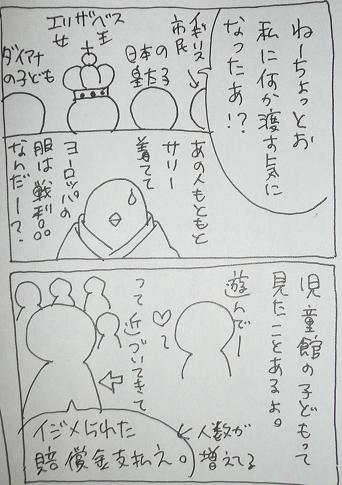 ねーちょっとお
私に何か渡す気に
なったあ!?
イギリス
市民
日本の
皇太子
エリザベス
女王
ダイアナ
の子ども
あの人もともと
サリー
着てて
ヨーロッパの
服は戦利品
なんだー?
児童館の子どもって
見たことあるよ。
遊んでー
♡~
って近づいてきて
人数が
増えてる
イジメられた
賠償金支払え。